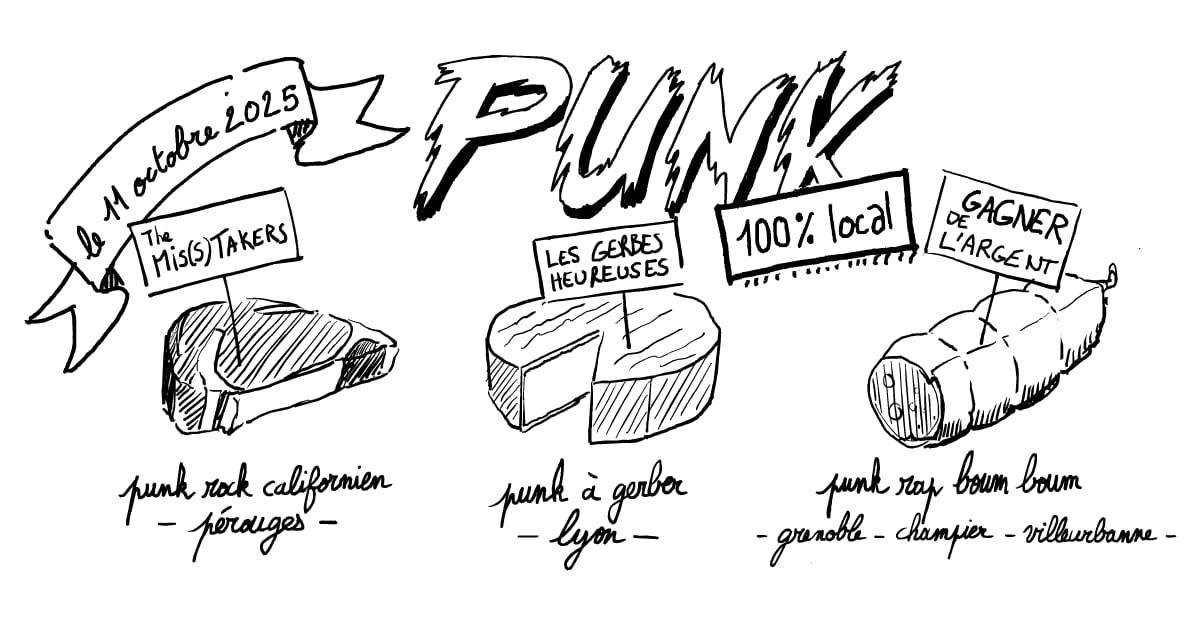 le 11 octobre 2025
PUNK
100% local
The
Mis(s)TAKERS
LES GERBES
HEUREUSES
GAGNER
DE
L'ARGENT
punk rock californien
- pérouges -
punk à gerber
- lyon -
punk rap boum boum
- grenoble - champier - villeurbanne -